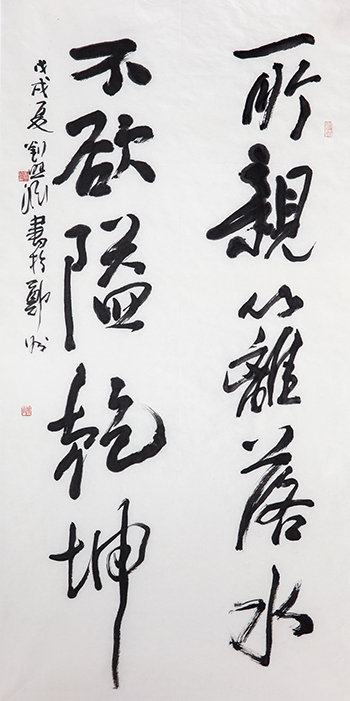 所親籬落水
不欲隘乾坤
戊戌夏劉書於鄭州